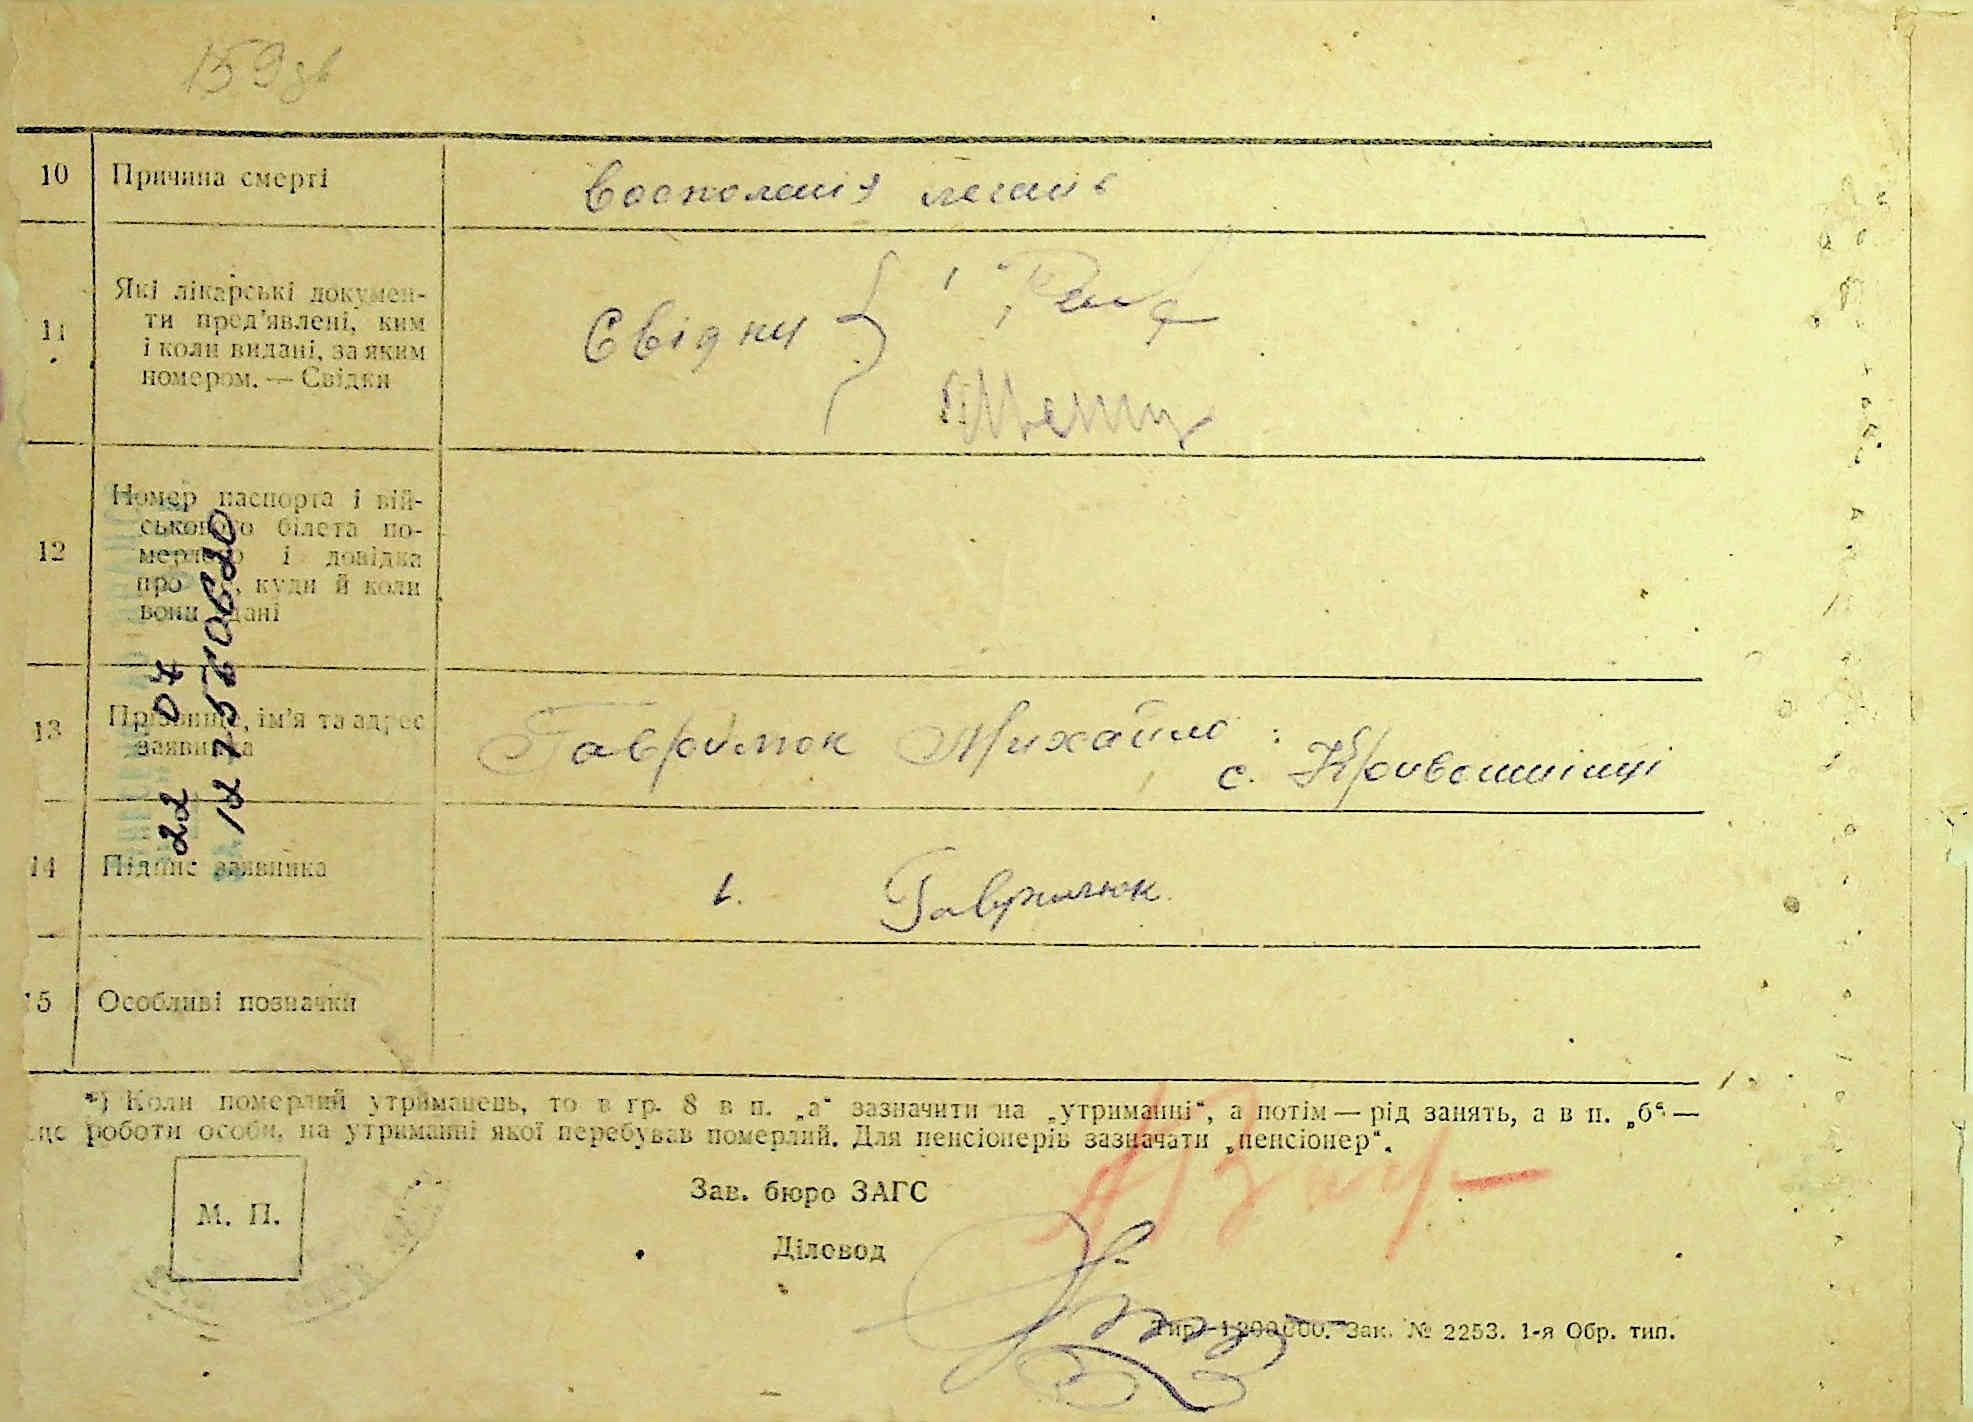 159зв
10 Причина смерті Воспоління легень
11 Які лікарські докумен-
ти пред'явлені, ким
і коли видані, за яким
номером. — Свідки
Свідки
12 Номер паспорта і вій-
ськового білета по-
мерлого і довідка
про куди й коли
вони
22 07
13 Прізвище, ім'я та адрес
заявника
Гаврилюк Михайло
с. Кривошиїнці
14 Підпис заявника
1. Гаврилюк.
15 Особливі позначки
*) Коли померлий утриманець, то в гр. 8 в п. „а“ зазначити на „утриманні“, а потім — рід занять, а в п. „б“ —
роботи особи, на утриманні якої перебував померлий. Для пенсіонерів зазначати „пенсіонер“.
М. П.
Зав. бюро ЗАГС
Діловод
Тир. 1200000. Зак. № 2253. 1-я Обр. тип.